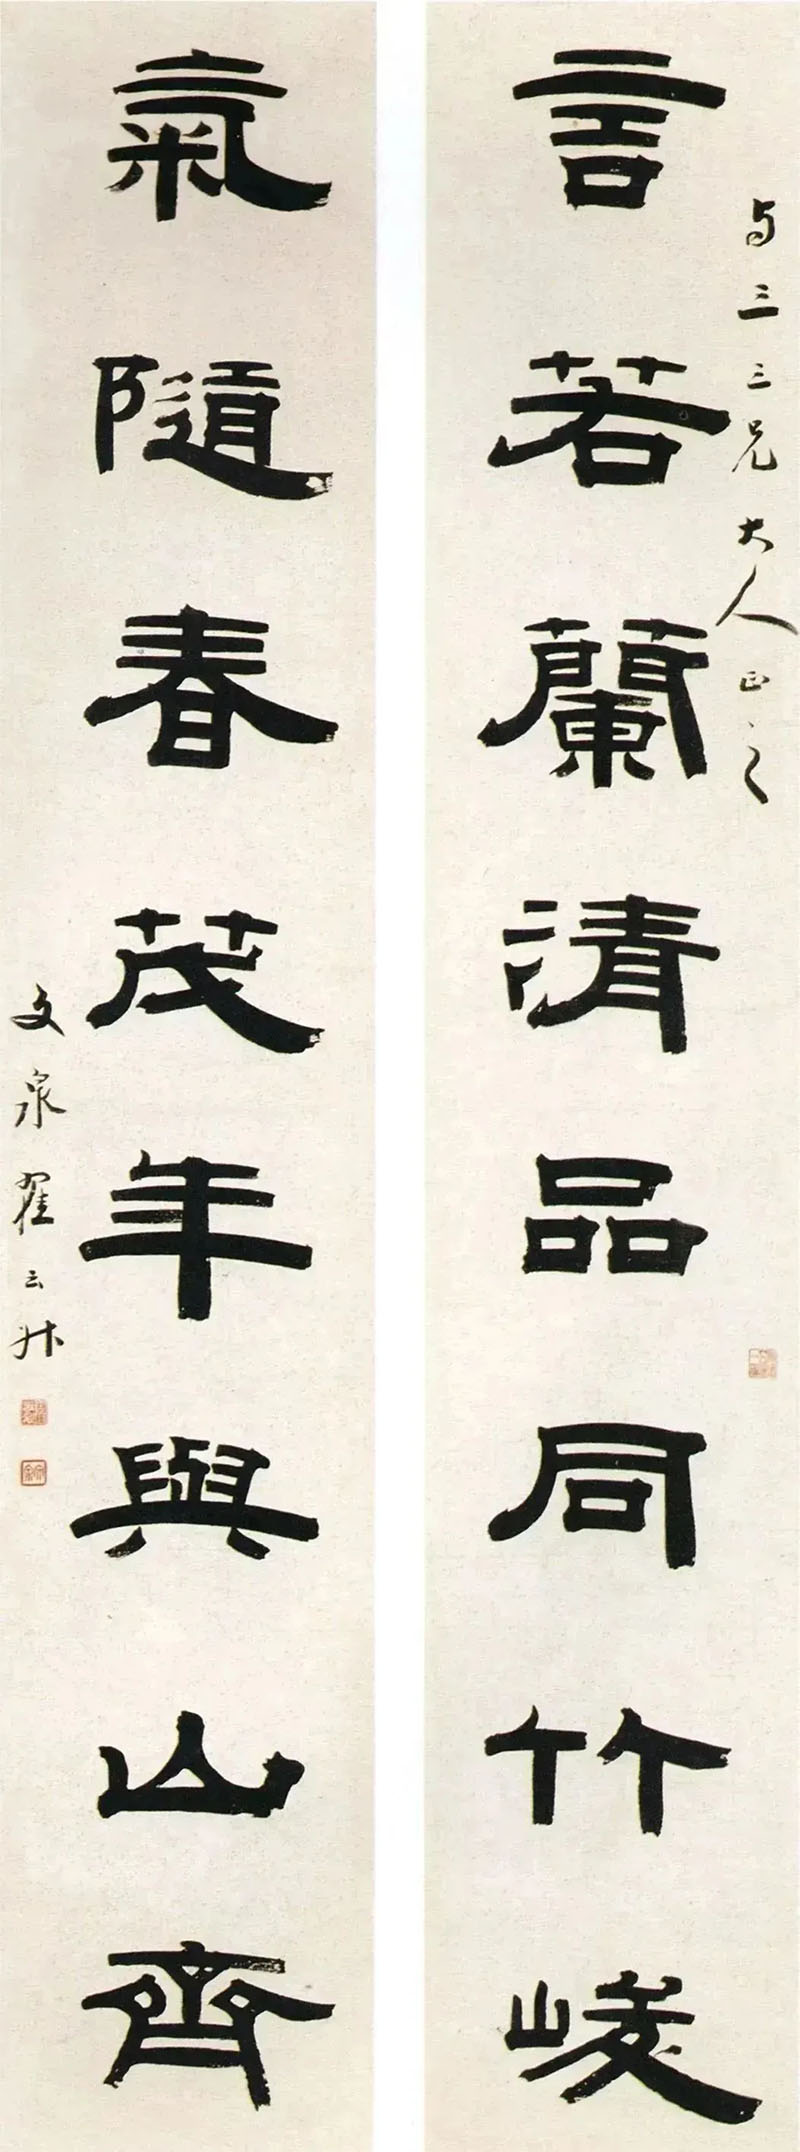 与三三兄大人正之
言若蘭清品同竹峻
氣隨春茂年與山齊
文泉翟云升